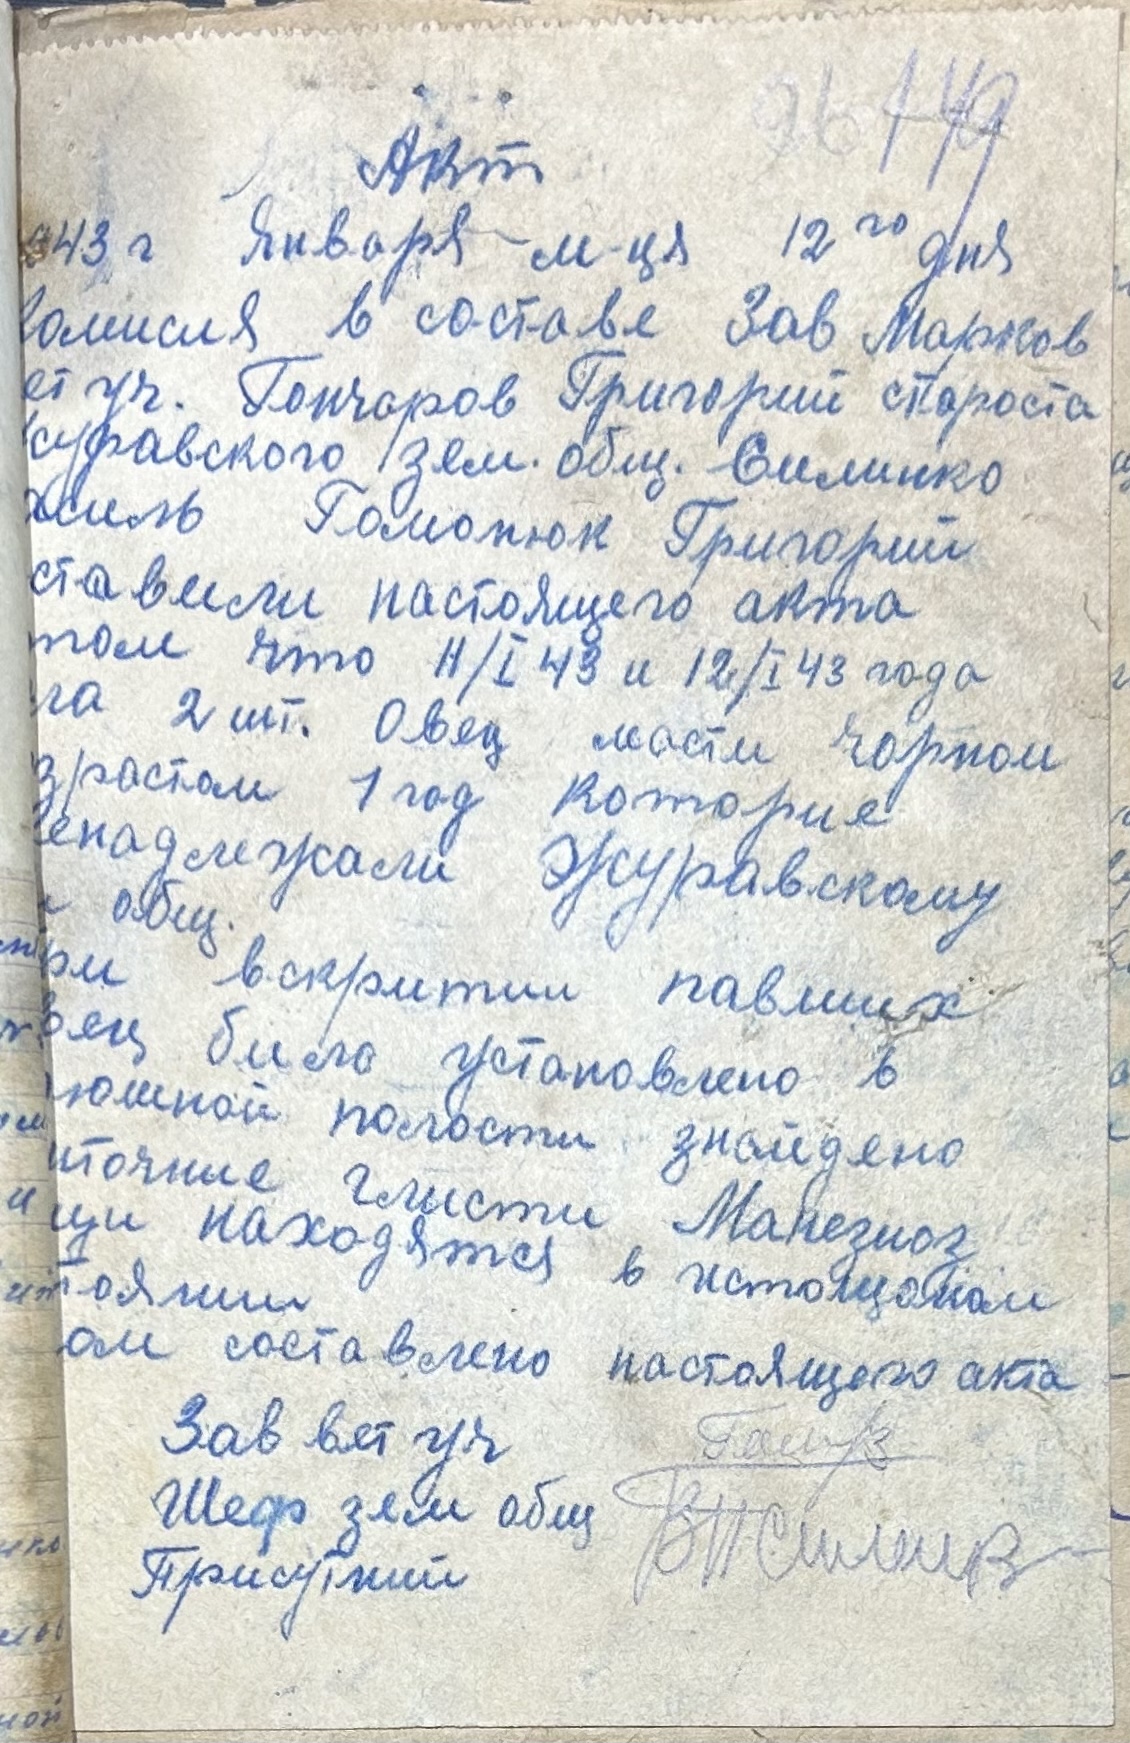 149
Акт
943 г Января м-ця 12го дня
комисия в составе Зав Марков
вет уч. Гончаров Григорий староста
Журавского зем. общ. Силинко
Гомонюк Григорий
ставили настоящего акта
том что 11/I 43 и 12/I 43 года
ла 2 шт. Овец масти чорном
зрастом 1 год которие
енадлежали Журавскому
общ.
ри вскритии павших
вец било установлено в
юшной полости знайдено
нточние глисти Манезиоз
ци находятся в истощоном
тоянии
ом составлено настоящего акта
Зав вет уч
Шеф зем общ
Присутний